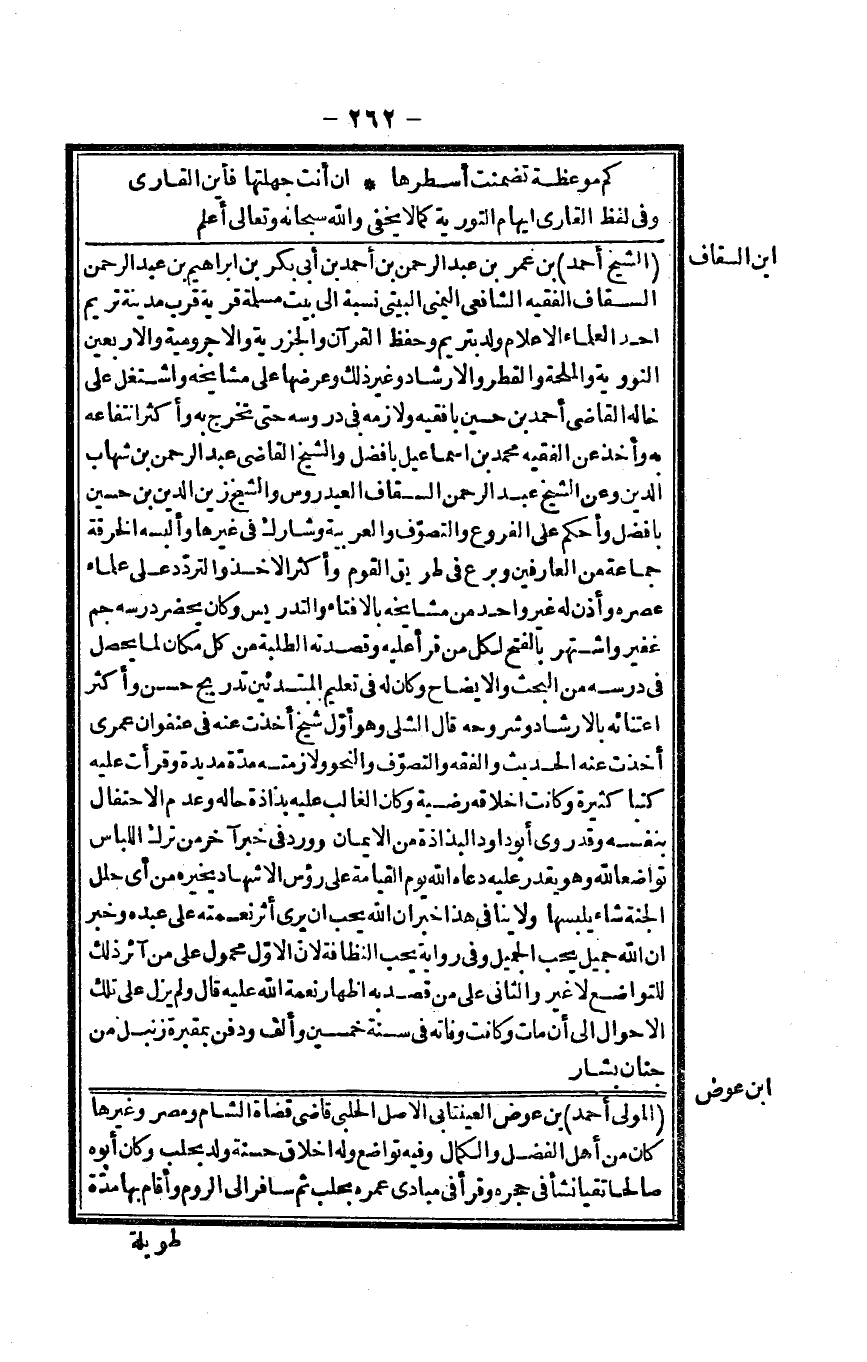 - ٢٦٢ -
كم موعظة تضمنت أسطرها * ان أنت جهلتها فأين القارى
وفى لفظ القارى ايهام التورية كمالا يخفى والله سبحانه وتعالى أعلم
ابن السقاف
(الشيخ أحمد) بن عمر بن عبد الرحمن بن أحمد بن أبى بكر بن ابراهيم بن عبد الرحمن
السقاف الفقيه الشافعى اليمنى البيتى نسبة الى بيت مسلمة قرية قرب مدينة تريم
احد العلماء الاعلام ولد بتريم وحفظ القرآن والجزرية والاجرومية والاربعين
النووية والملحة والقطر والارشاد وغير ذلك وعرضها على مشايخه واشتغل على
خاله القاضى أحمد بن حسين بافقيه ولازمه فى دروسه حتى تخرج به وأكثر انتفاعه
به وأخذ عن الفقيه محمد بن اسماعيل بافضل والشيخ القاضى عبد الرحمن بن شهاب
الدين وعن الشيخ عبد الرحمن السقاف العيدروس والشيخ زين الدين بن حسين
بافضل وأحكم على الفروع والتصوّف والعربية وشارك فى غيرها وألبسه الخرقة
جماعة من العارفين وبرع فى طريق القوم وأكثر الاخذ والتردّد على علماء
عصره وأذن له غير واحد من مشايخه بالافتاء والتدريس وكان يحضر درسه جم
غفير واشتهر بالفتح لكل من قرأ عليه وقصدته الطلبة من كل مكان لما يحصل
فى درسه من البحث والايضاح وكان له فى تعليم المبتدئين تدريج حسن وأكثر
اعتنائه بالارشاد وشروحه قال الشلى وهو أوّل شيخ أخذت عنه فى عنفوان عمرى
أخذت عنه الحديث والفقه والتصوّف والنحو ولازمته مدّة مديدة وقرأت عليه
كتبا كثيرة وكانت اخلاقه رضية وكان الغالب عليه بذاذة حاله وعدم الاحتفال
بنفسه وقد روى أبو داود البذاذة من الايمان وورد فى خبر آخر من ترك اللباس
تواضعا لله وهو يقدر عليه دعاه الله يوم القيامة على رؤس الاشهاد يخيره من أى حلل
الجنة شاء يلبسها ولا ينافى هذا خبر ان الله يحب ان يرى أثر نعمته على عبده وخبر
ان الله جميل يحب الجميل وفى رواية يحب النظافة لانّ الاوّل محمول على من آثر ذلك
للتواضع لا غير والثانى على من قصد به اظهار نعمة الله عليه قال ولم يزل على تلك
الاحوال الى أن مات وكانت وفاته فى سنة خمسين وألف ودفن بمقبرة زنبل من
جنان بشار
ابن عوض
(المولى أحمد) بن عوض العينتابى الاصل الحلبى قاضى قضاة الشام ومصر وغيرها
كان من أهل الفضل والكمال وفيه تواضع وله اخلاق حسنة ولد بحلب وكان أبوه
صالحا تقيا نشأ فى حجره وقرأ فى مبادى عمره بحلب ثم سافر الى الروم وأقام بها مدّة
طويلة